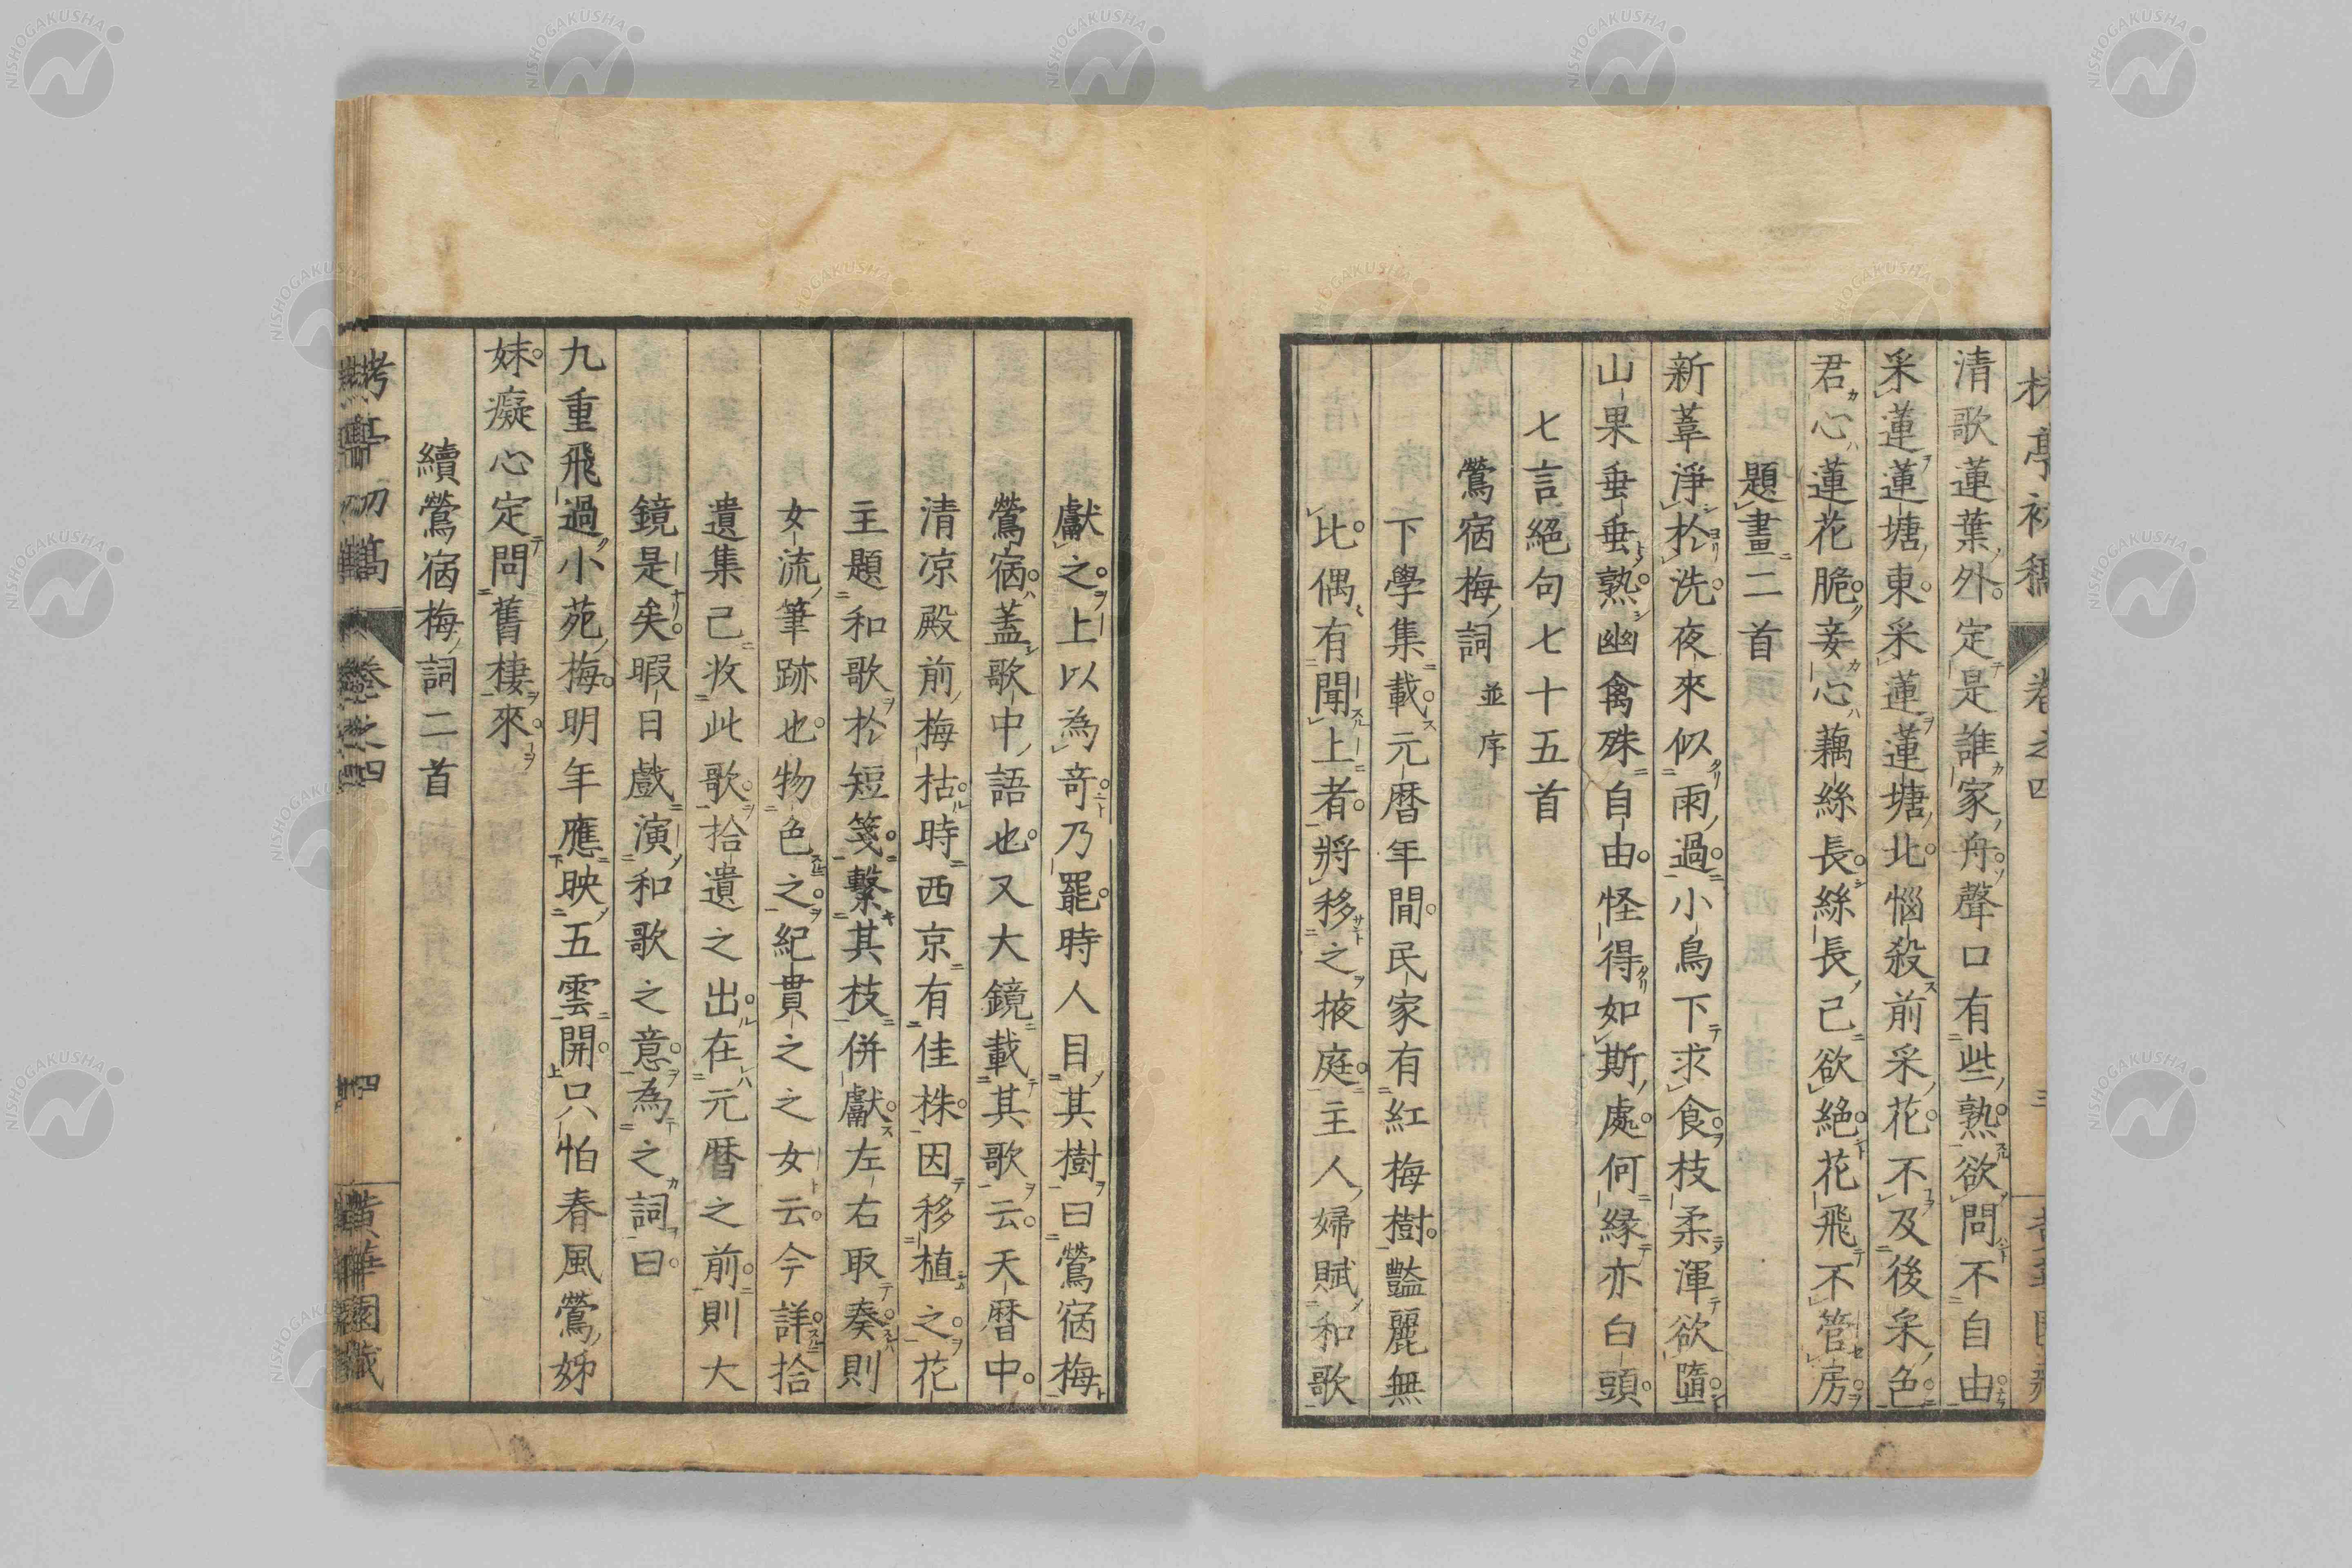 清歌蓮葉外定是誰家舟聲口有些熟欲問不自由
采蓮蓮塘東采蓮蓮塘北惱殺前采花不及後采色
君心蓮花脆妾心藕絲長絲長己欲絕花飛不管房
題畫二首
新葦淨於洗夜來似雨過小鳥下求食枝柔渾欲隨
山果垂垂熟幽禽殊自由怪得如斯處何緣亦白頭
七言絕句七十五首
鶯宿梅詞 並序
下學集載元暦年間民家有紅梅樹豔麗無
比偶有聞上者將移之掖庭主人婦賦和歌
獻之上以為竒乃罷時人目其樹曰鶯宿梅
鶯宿蓋歌中語也又大鏡載其歌云天暦中
清凉殿前梅枯時西京有佳株因移植之花
主題和歌於短箋繫其枝併獻左右取奏則
女流筆跡也物色之紀貫之之女云今詳拾
遺集己收此歌拾遺之出在元暦之前則大
鏡是矣暇日戲演和歌之意為之詞曰
九重飛過小苑梅明年應映五雲開只怕春風鶯姊
妹癡心定問舊棲來
續鶯宿梅詞二首
卷之四
四
NISHOGAKUSHA